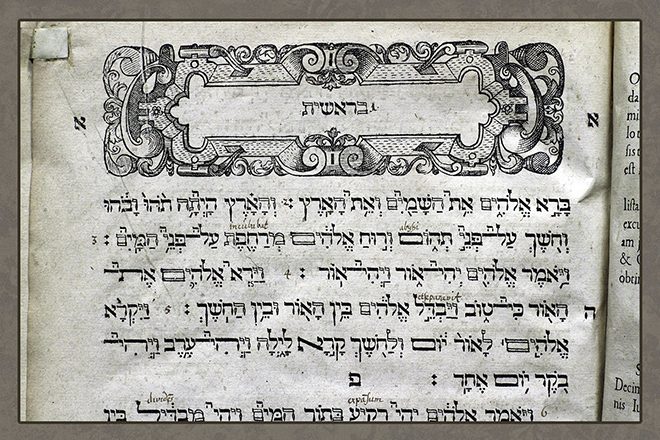 בראשית
א א
בָּרָא אֱלֹהִים אֵת הַשָּׁמַיִם וְאֵת הָאָרֶץ : וְהָאָרֶץ הָיְתָה תֹהוּ וָבֹהוּ
abyssi
וְחֹשֶׁךְ עַל־פְּנֵי תְהוֹם וְרוּחַ אֱלֹהִים מְרַחֶפֶת עַל־פְּנֵי הַמָּיִם : 3
וַיֹּאמֶר אֱלֹהִים יְהִי־אוֹר וַיְהִי־אוֹר : 4 וַיַּרְא אֱלֹהִים אֶת־
ה הָאוֹר כִּי־טוֹב וַיַּבְדֵּל אֱלֹהִים בֵּין הָאוֹר וּבֵין הַחֹשֶׁךְ : 5 וַיִּקְרָא
אֱלֹהִים לָאוֹר יוֹם וְלַחֹשֶׁךְ קָרָא לָיְלָה וַיְהִי־עֶרֶב וַיְהִי־
בֹקֶר יוֹם אֶחָד : פ
expansum
6 וַיֹּאמֶר אֱלֹהִים יְהִי רָקִיעַ בְּתוֹךְ הַמָּיִם וִיהִי מַבְדִּיל בֵּין
da
est
lista
excu
am
Decim
nis Iu